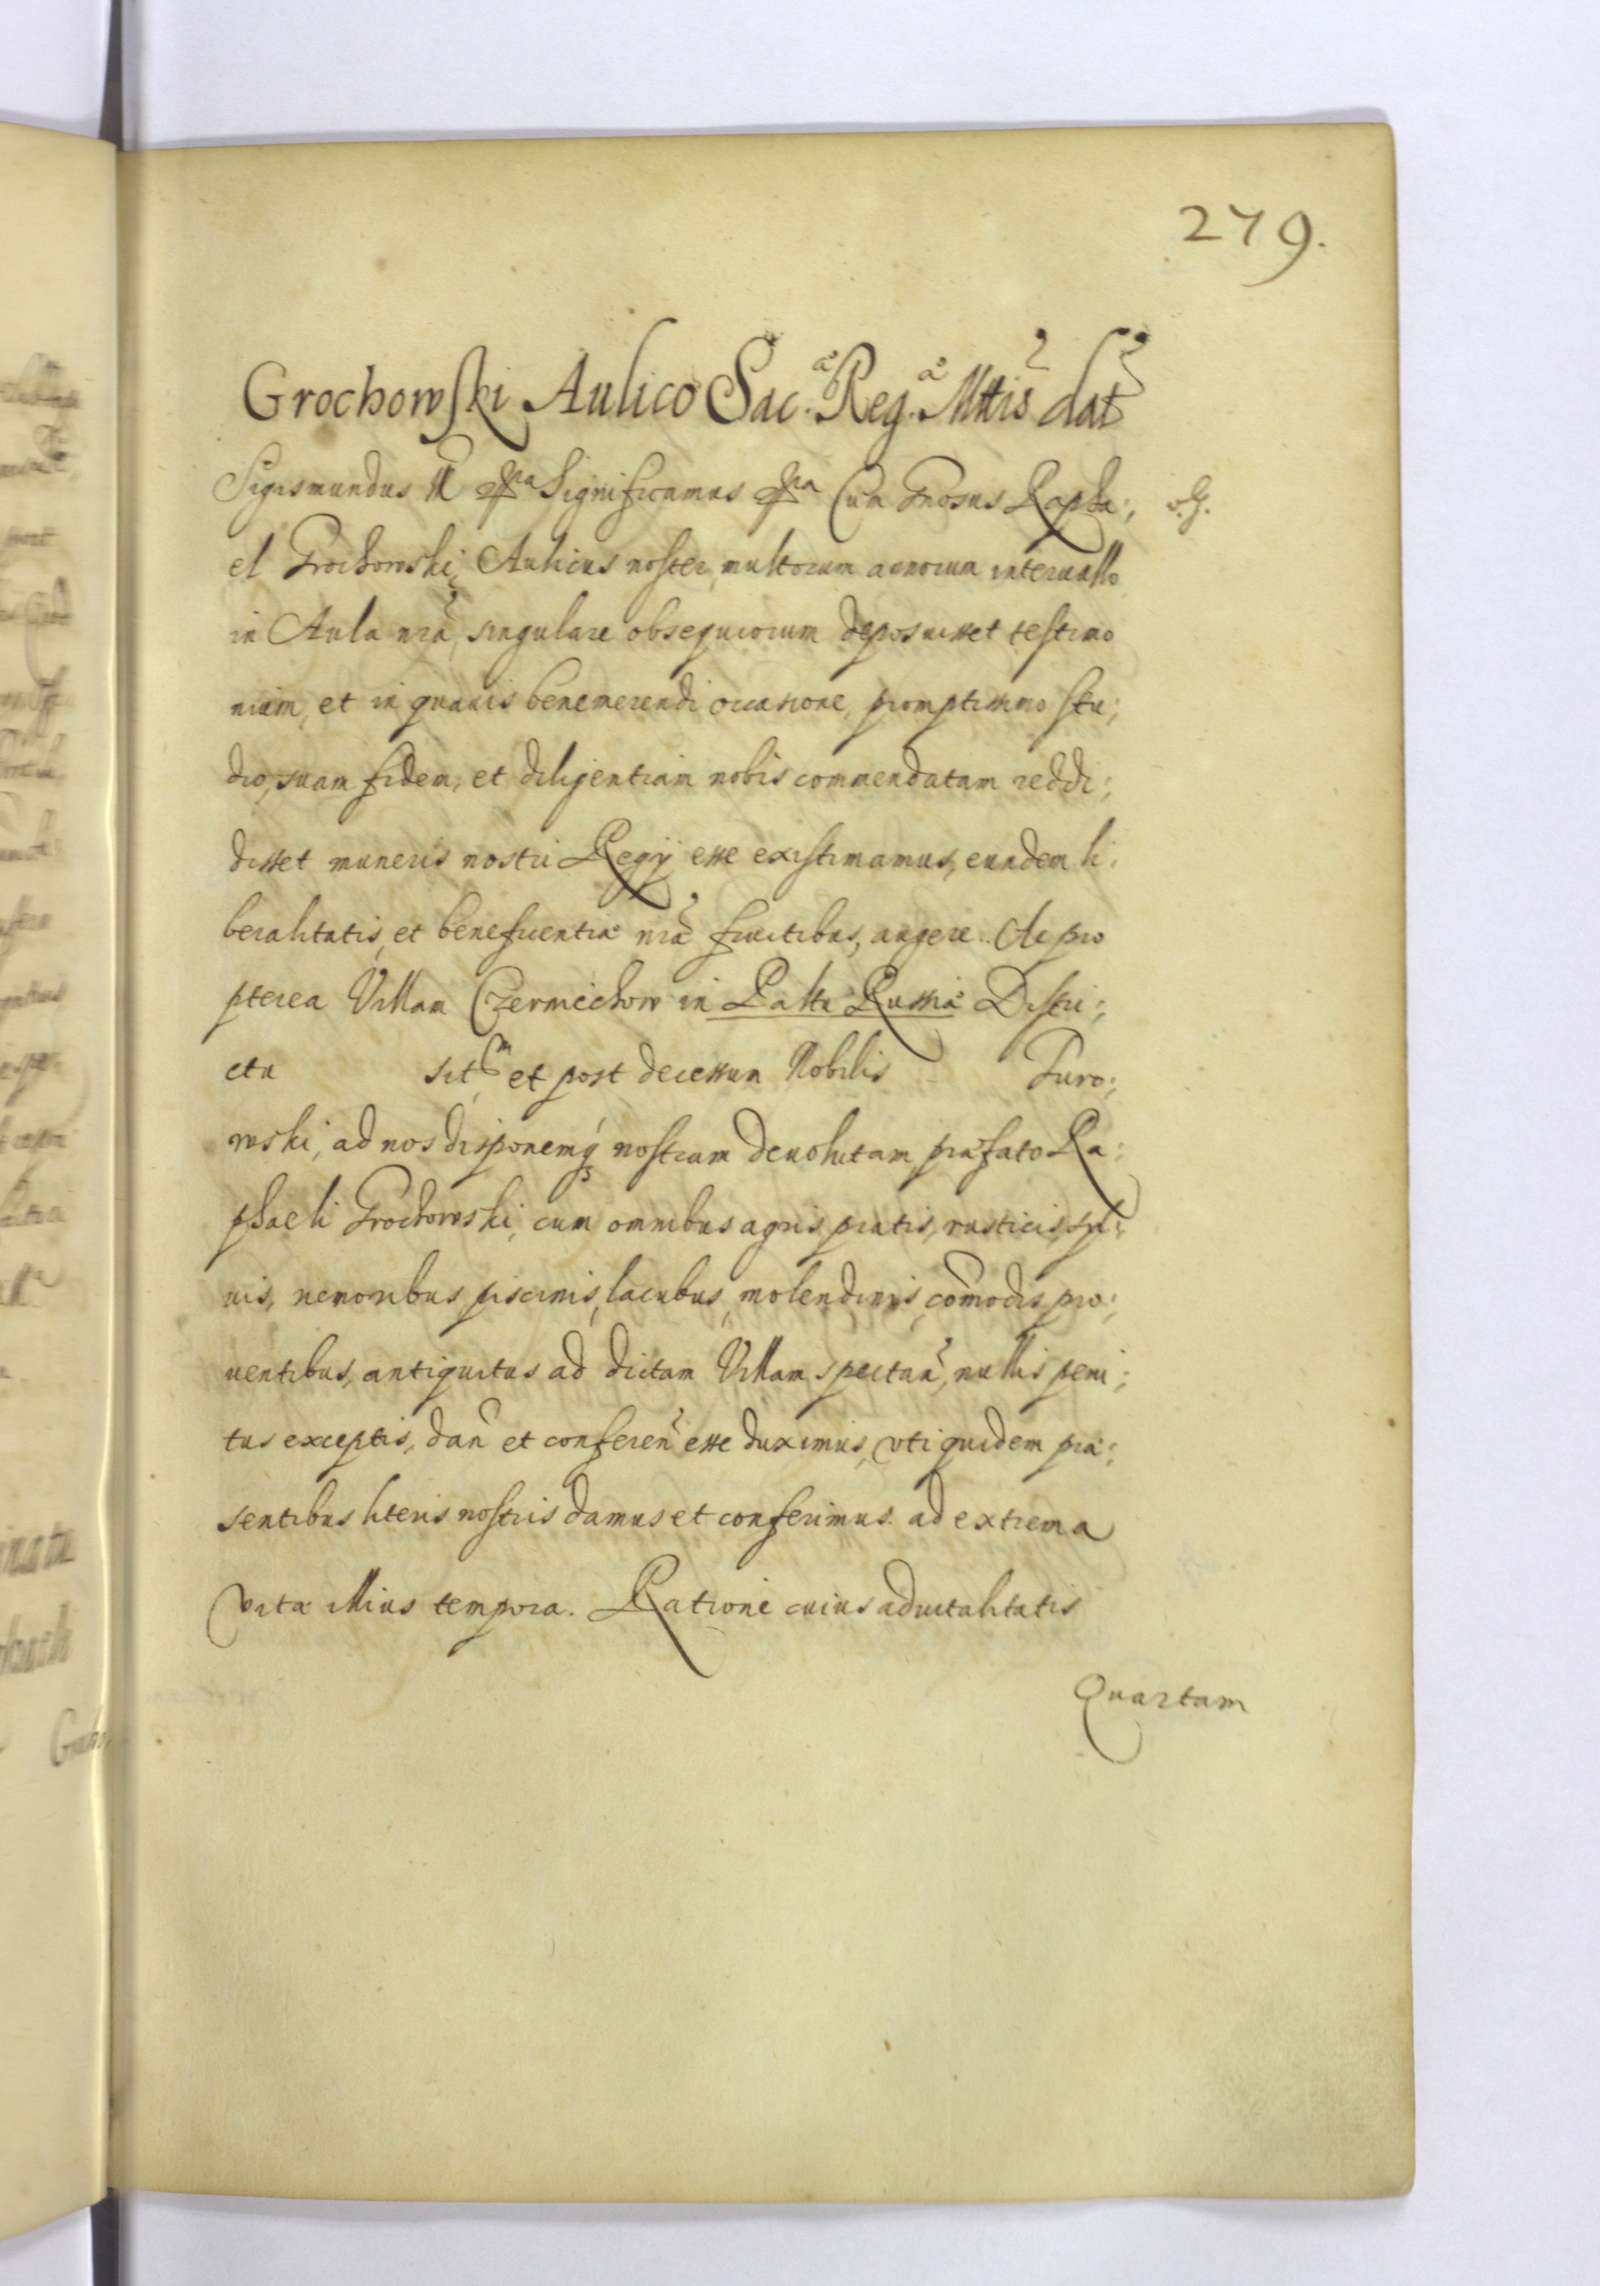 279.
Grochowski Aulico Sac.æ Reg.æ Mttis dat
Sigismundus III &ra Significamus &ra Cum Gnosus Rapha:,
el Grochowski, Aulicus noster, multorum annorum interuallo
in Aula nra, singulare obsequiorum deposuisset testimo
nium, et in quauis benemerendi occasione, promptissimo stu:,
dio, suam fidem, et diligentiam nobis commendatam reddi:,
disset muneris nostri Regij esse existimamus, eundem li:
beralitatis, et beneficentiæ nræ fructibus, augere. Ac pro
pterea Villam Czerniechow in Pallu Russiæ Distri:,
ctu sitm et post decessum Nobilis Turo:,
wski, ad nos disponemq nostram deuolutam, præfato Ra:
phaeli Grochowski, cum omnibus agris, pratis, rusticis, syl:
uis, nemoribus, piscinis, lacubus, molendinis, comodis, pro:,
uentibus, antiquitus ad dictam Villam spectan, nullis peni:,
tus exceptis, dan et conferen esse duximus, vti quidem præ:,
sentibus literis nostris damus et conferimus. ad extrema
vitæ illius tempora. Ratione cuius aduitalitatis
Quartam